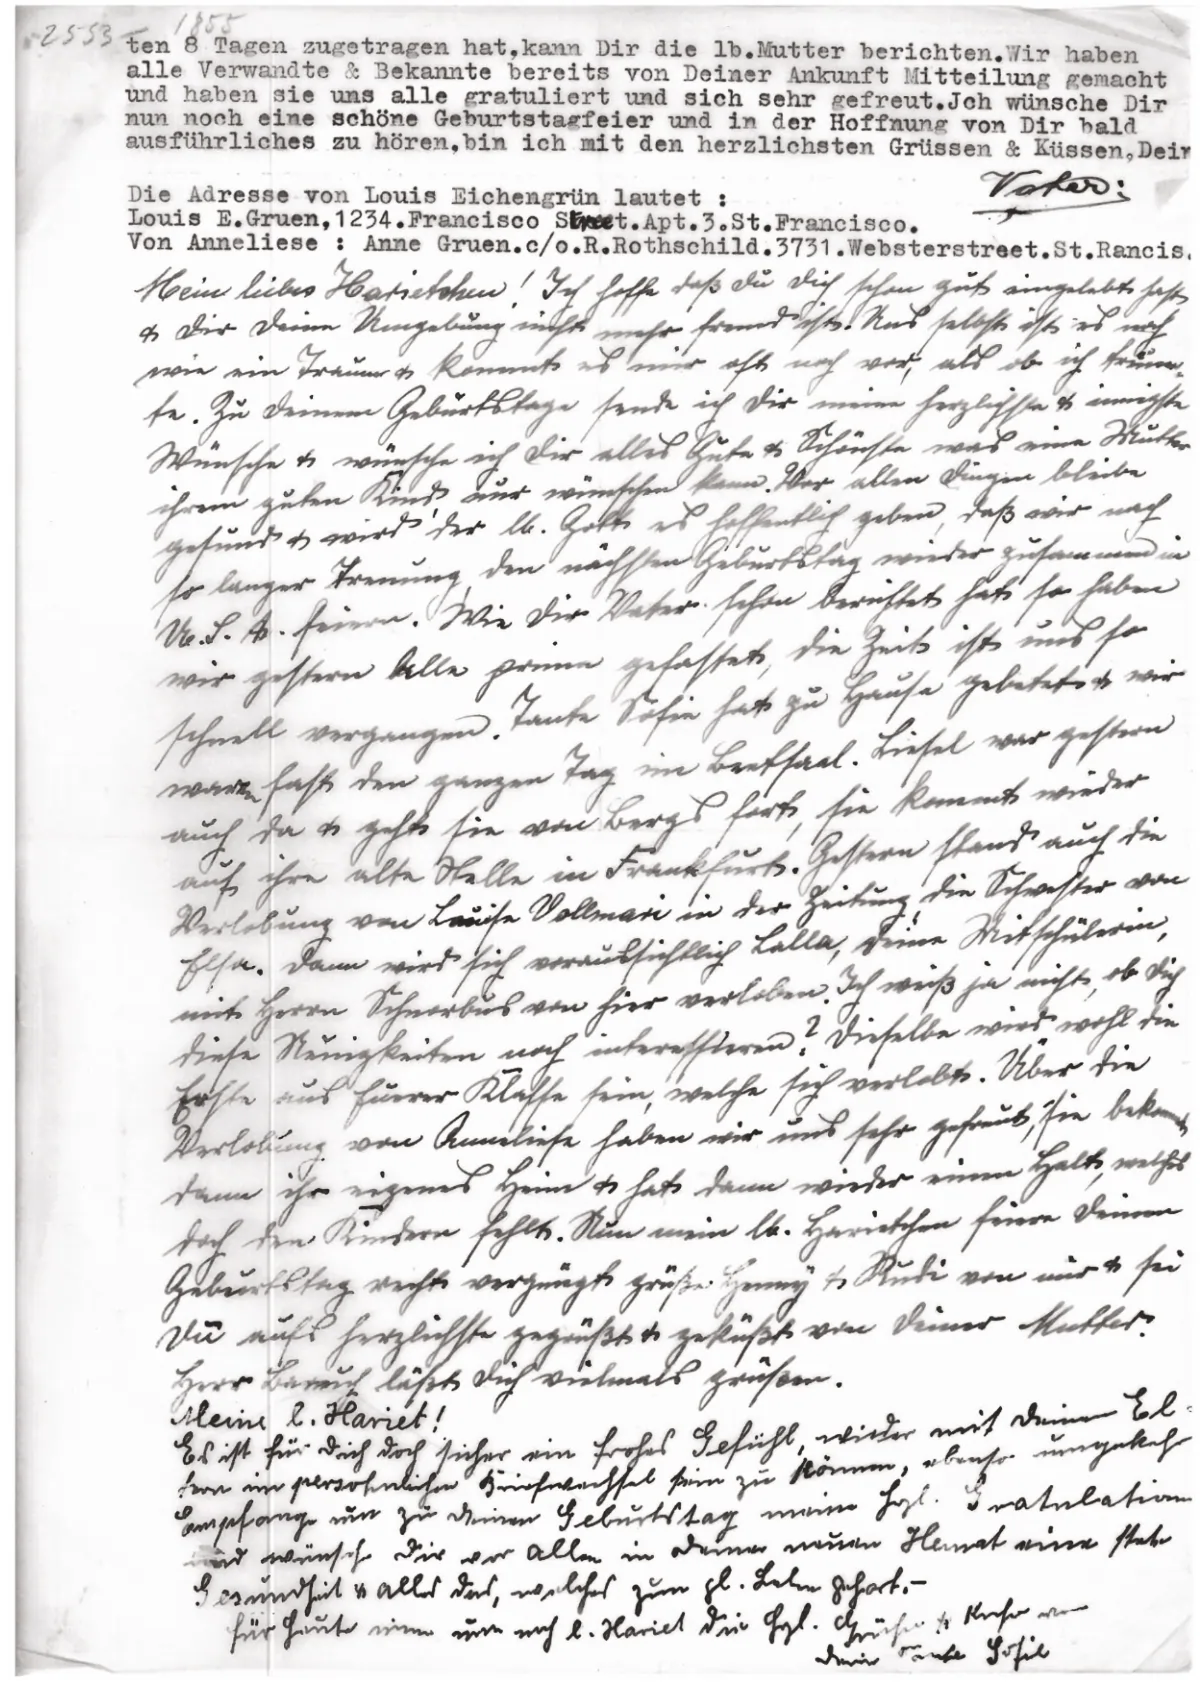 -2553- 1855
ten 8 Tagen zugetragen hat,kann Dir die lb.Mutter berichten.Wir haben
alle Verwandte & Bekannte bereits von Deiner Ankunft Mitteilung gemacht
und haben sie uns alle gratuliert und sich sehr gefreut.Jch wünsche Dir
nun noch eine schöne Geburtstagfeier und in der Hoffnung von Dir bald
ausführliches zu hören,bin ich mit den herzlichsten Grüssen & Küssen,Dein
Vater:
Die Adresse von Louis Eichengrün lautet :
Louis E.Gruen,1234.Francisco Street.Apt.3.St.Francisco.
Von Anneliese : Anne Gruen.c/o.R.Rothschild.3731.Websterstreet.St.Rancis.
Mein liebes Harietchen! Ich hoffe daß Du Dich schon gut eingelebt hast
& Dir Deine Umgebung nicht mehr fremd ist. Uns selbst ist es noch
wie ein Traum & kommt es mir oft noch vor, als ob ich träum-
te. Zu Deinem Geburtstage sende ich Dir meine herzlichste & innigste
Wünsche & wünsche ich Dir alles Gute & Schönste was eine Mutter
ihrem guten Kind nur wünschen kann. Vor allen Dingen bleibe
gesund & wird der lb. Gott es hoffentlich geben, daß wir nach
so langer Trennung, den nächsten Geburtstag wieder zusammen in
U.S.A. feiern. Wie Dir Vater schon berichtet hat so haben
wir gestern Alle prima gefastet, die Zeit ist uns so
schnell vergangen. Tante Sofie hat zu Hause gebetet & wir
waren fast den ganzen Tag im Beetsaal. Liesel war gestern
auch da & geht sie von Bergs fort, sie kommt wieder
auf ihre alte Stelle in Frankfurt. Gestern stand auch die
Verlobung von Louise Vollmari in der Zeitung, die Schwester von
Elsa. Dann wird sich voraussichtlich Lalla, Deine Mitschülerin,
mit Herrn Schnorbus von hier verloben. Ich weiß ja nicht, ob Dich
diese Neuigkeiten noch interessieren? Dieselbe wird wohl die
Erste aus Euerer Klasse sein, welche sich verlobt. Über die
Verlobung von Anneliese haben wir uns sehr gefreut, sie bekommt
dann ihr eigenes Heim & hat dann wieder einen Halt, welches
doch den Kindern fehlt. Nun mein lb. Harietchen feiere Deinen
Geburtstag recht vergnügt grüße Henny & Rudi von mir & sei
Du aufs herzlichste gegrüßt & geküßt von Deiner Mutter.
Herr Baruch läßt Dich vielmals grüßen.
Meine l. Hariet!
Es ist für Dich doch sicher ein frohes Gefühl, wieder mit Deinen El-
tern im persohnlichen Briefwechsel sein zu können, ebenso umgekehr
Empfange nun zu Deinem Geburtstag meine hzl. Gratulation
und wünsche Dir vor Allem in Deiner neuen Heimat eine stete
Gesundheit & alles das, welches zum gl. Leben gehört.-
für heute nimm nun noch l. Hariet die hzl. Grüße & Küsse von
Deine Tante Sofie